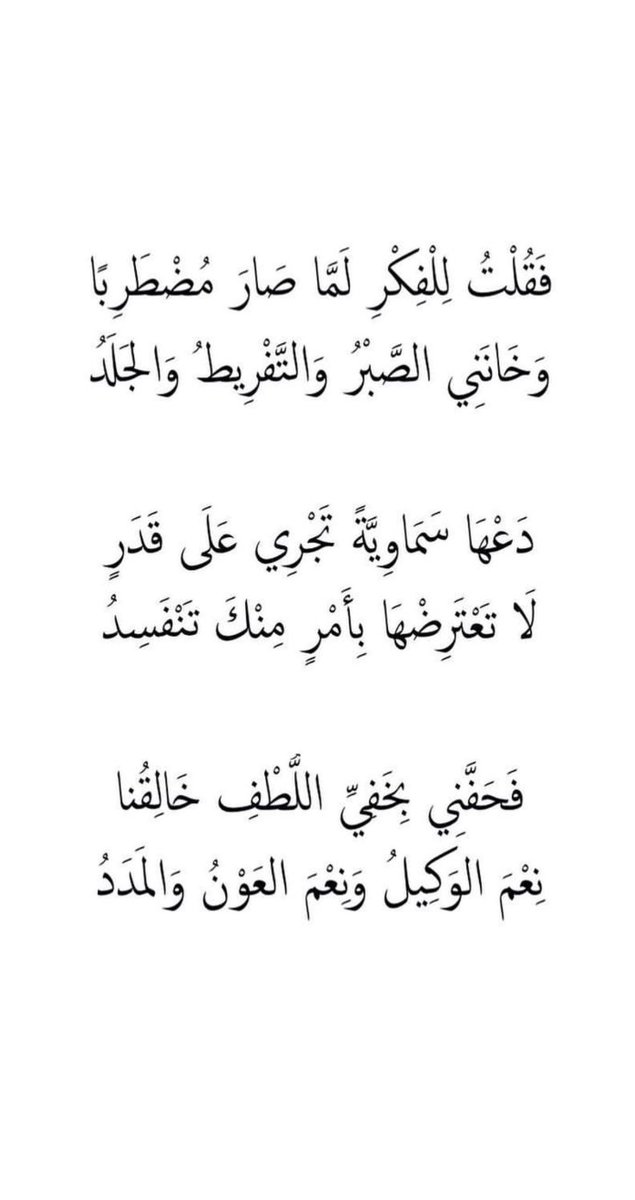 فَقُلْتُ لِلْفِكْرِ لَمَّا صَارَ مُضْطَرِبًا
وَخَانَنِي الصَّبْرُ وَالتَّفْرِيطُ وَالجَلَدُ
دَعْهَا سَمَاوِيَّةً تَجْرِي عَلَى قَدَرٍ
لَا تَعْتَرِضْهَا بِأَمْرٍ مِنْكَ تَنْفَسِدُ
فَحَفَّنِي بِخَفِيِّ اللَّطْفِ خَالِقُنا
نِعْمَ الوَكِيلُ وَنِعْمَ العَوْنُ وَالمَدَدُ